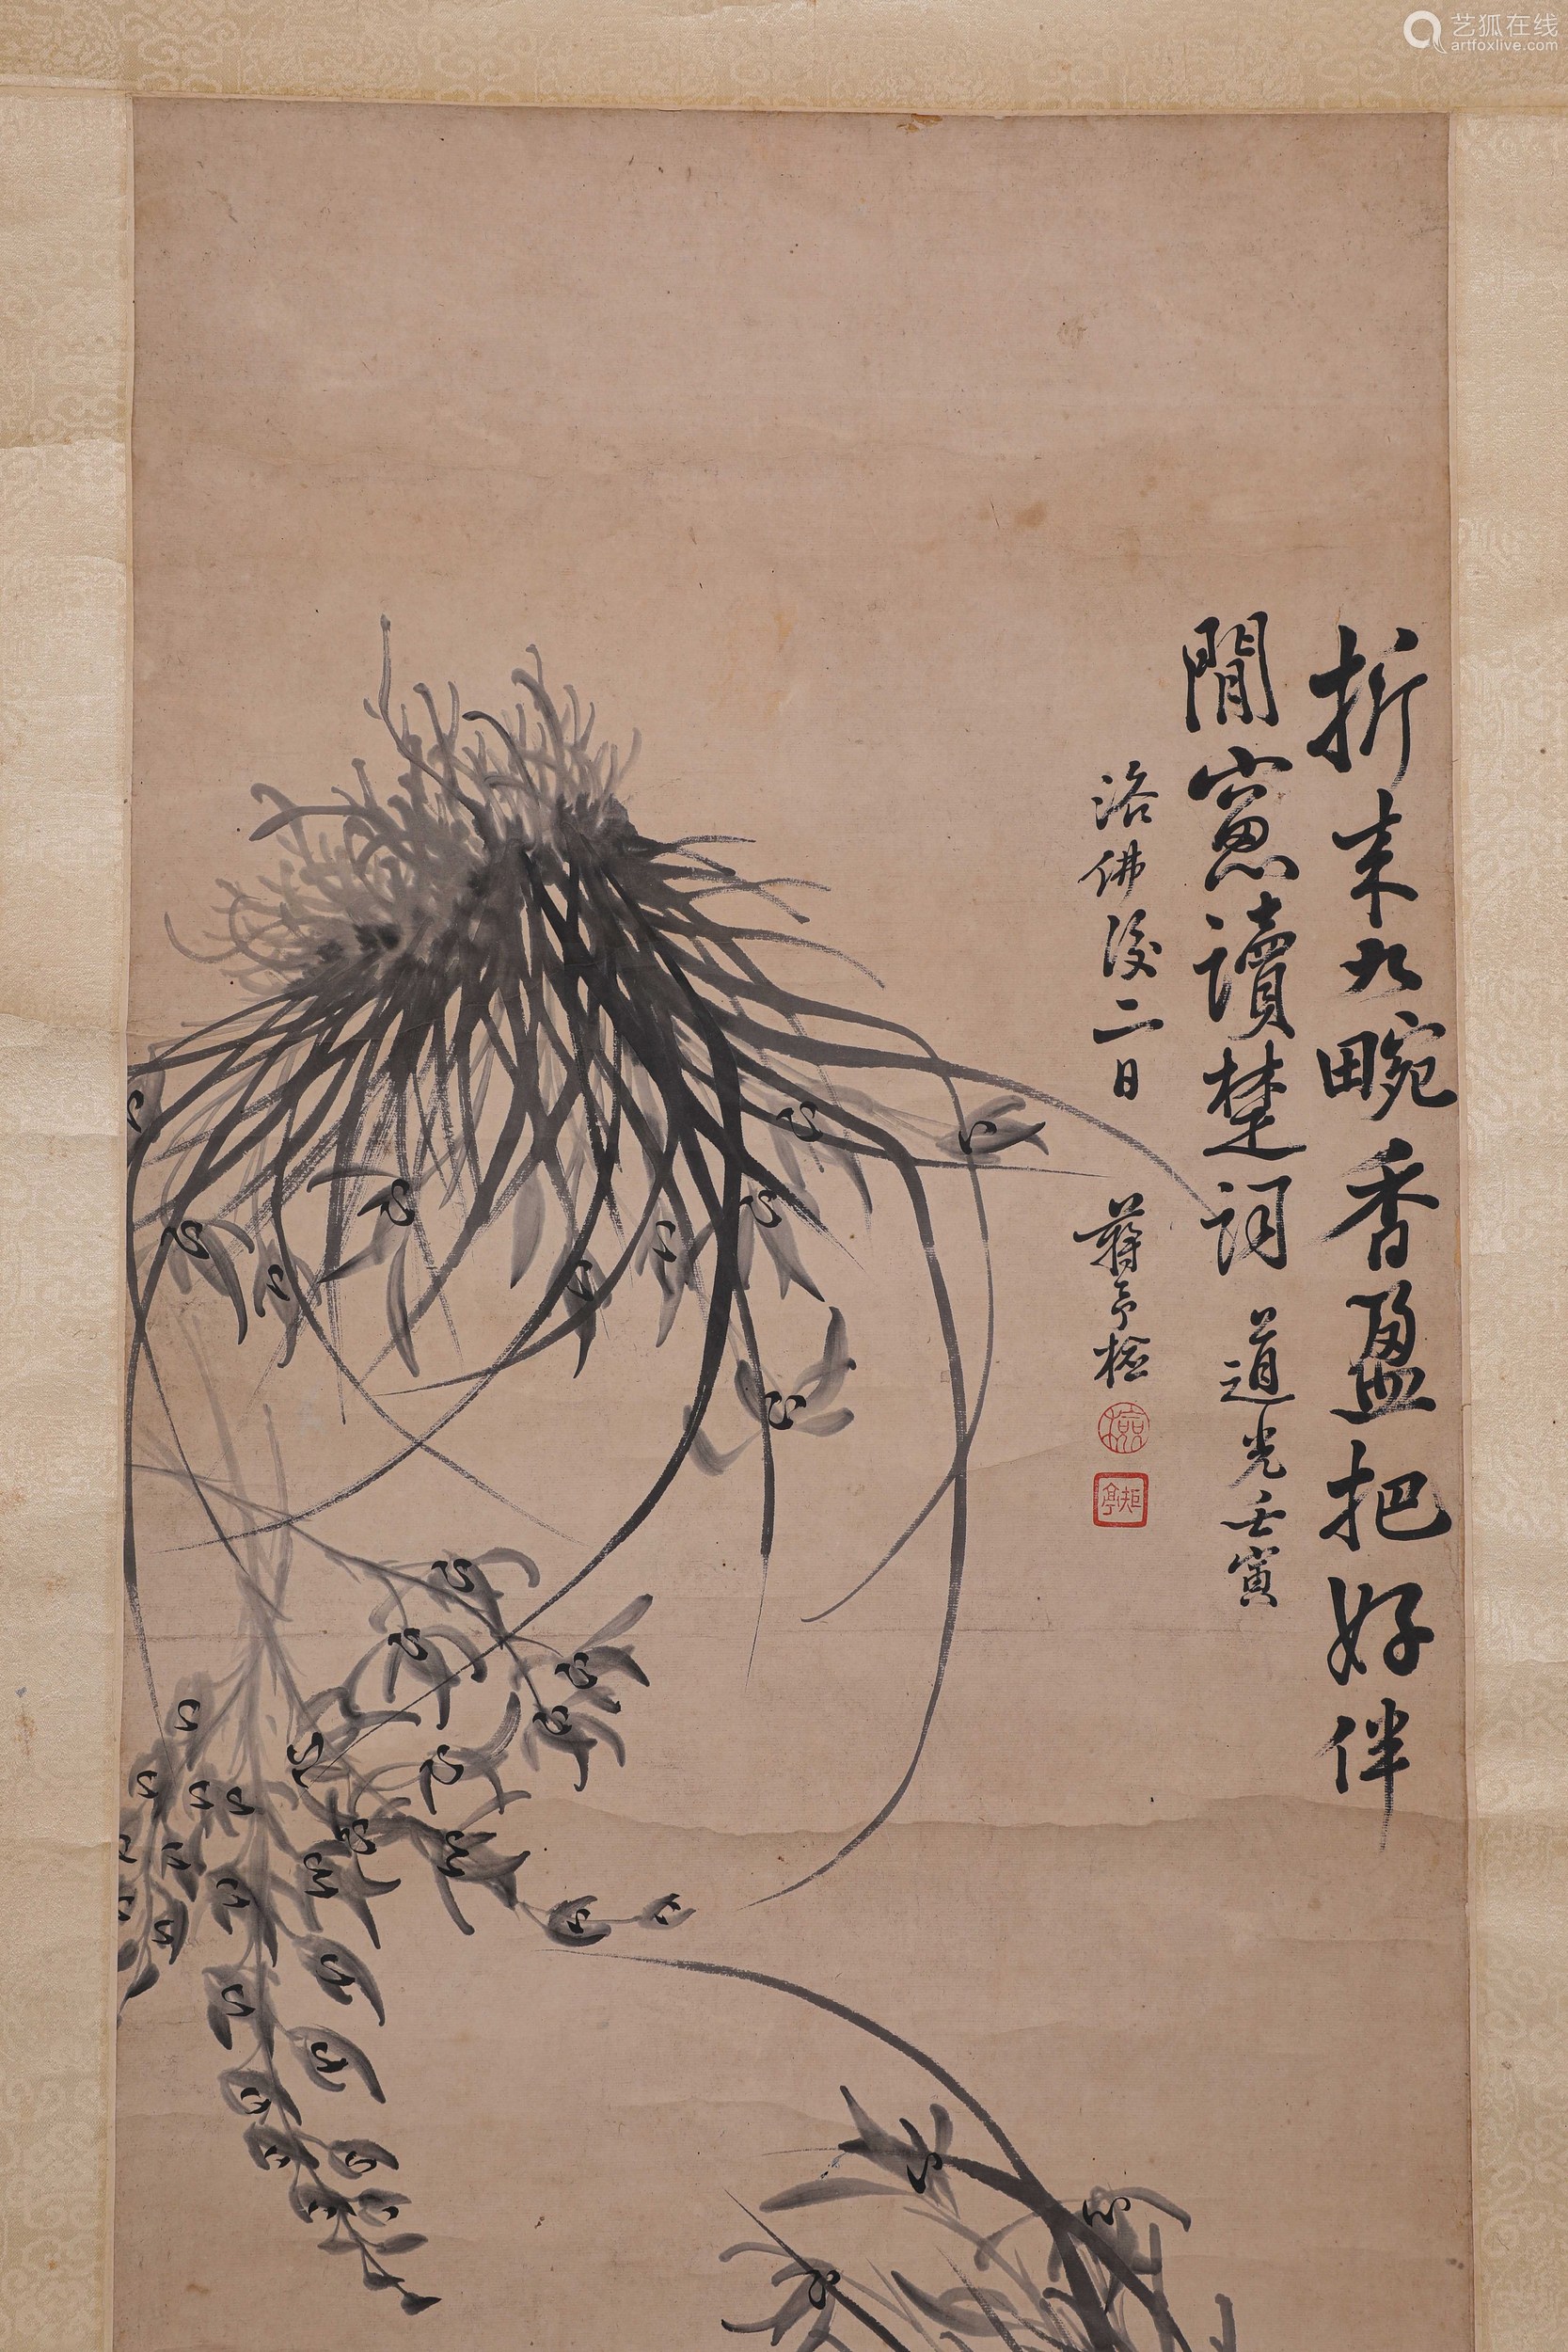 折来九畹香盈把好伴
閒窻讀楚词道光壬寅
浴佛後二日
蔣予檢
檢
矩亭
艺狐在线
artfoxlive.com